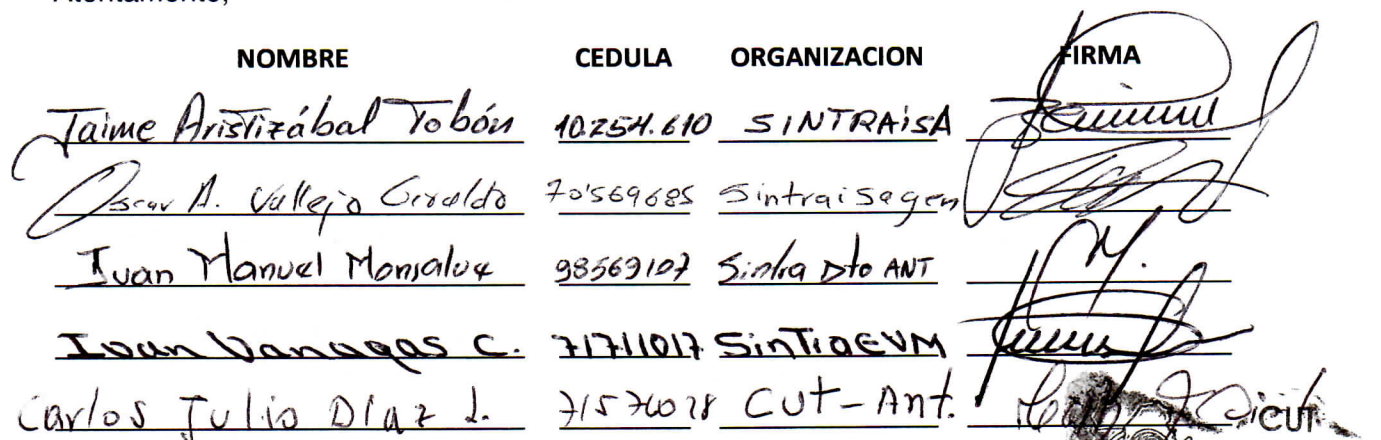 Atentamente,
NOMBRE CEDULA ORGANIZACION FIRMA
Jaime Aristizábal Tobón 10.254.610 SINTRAiSA
Oscar A. Vallejo Giraldo 70'569685 Sintraisagen
Juan Manuel Monsalve 98569107 Sintra Dto ANT
Ivan Vanagas C. 71711017 SinTraEVM
Carlos Julio Díaz L. 71576028 CUT-Ant. CUT